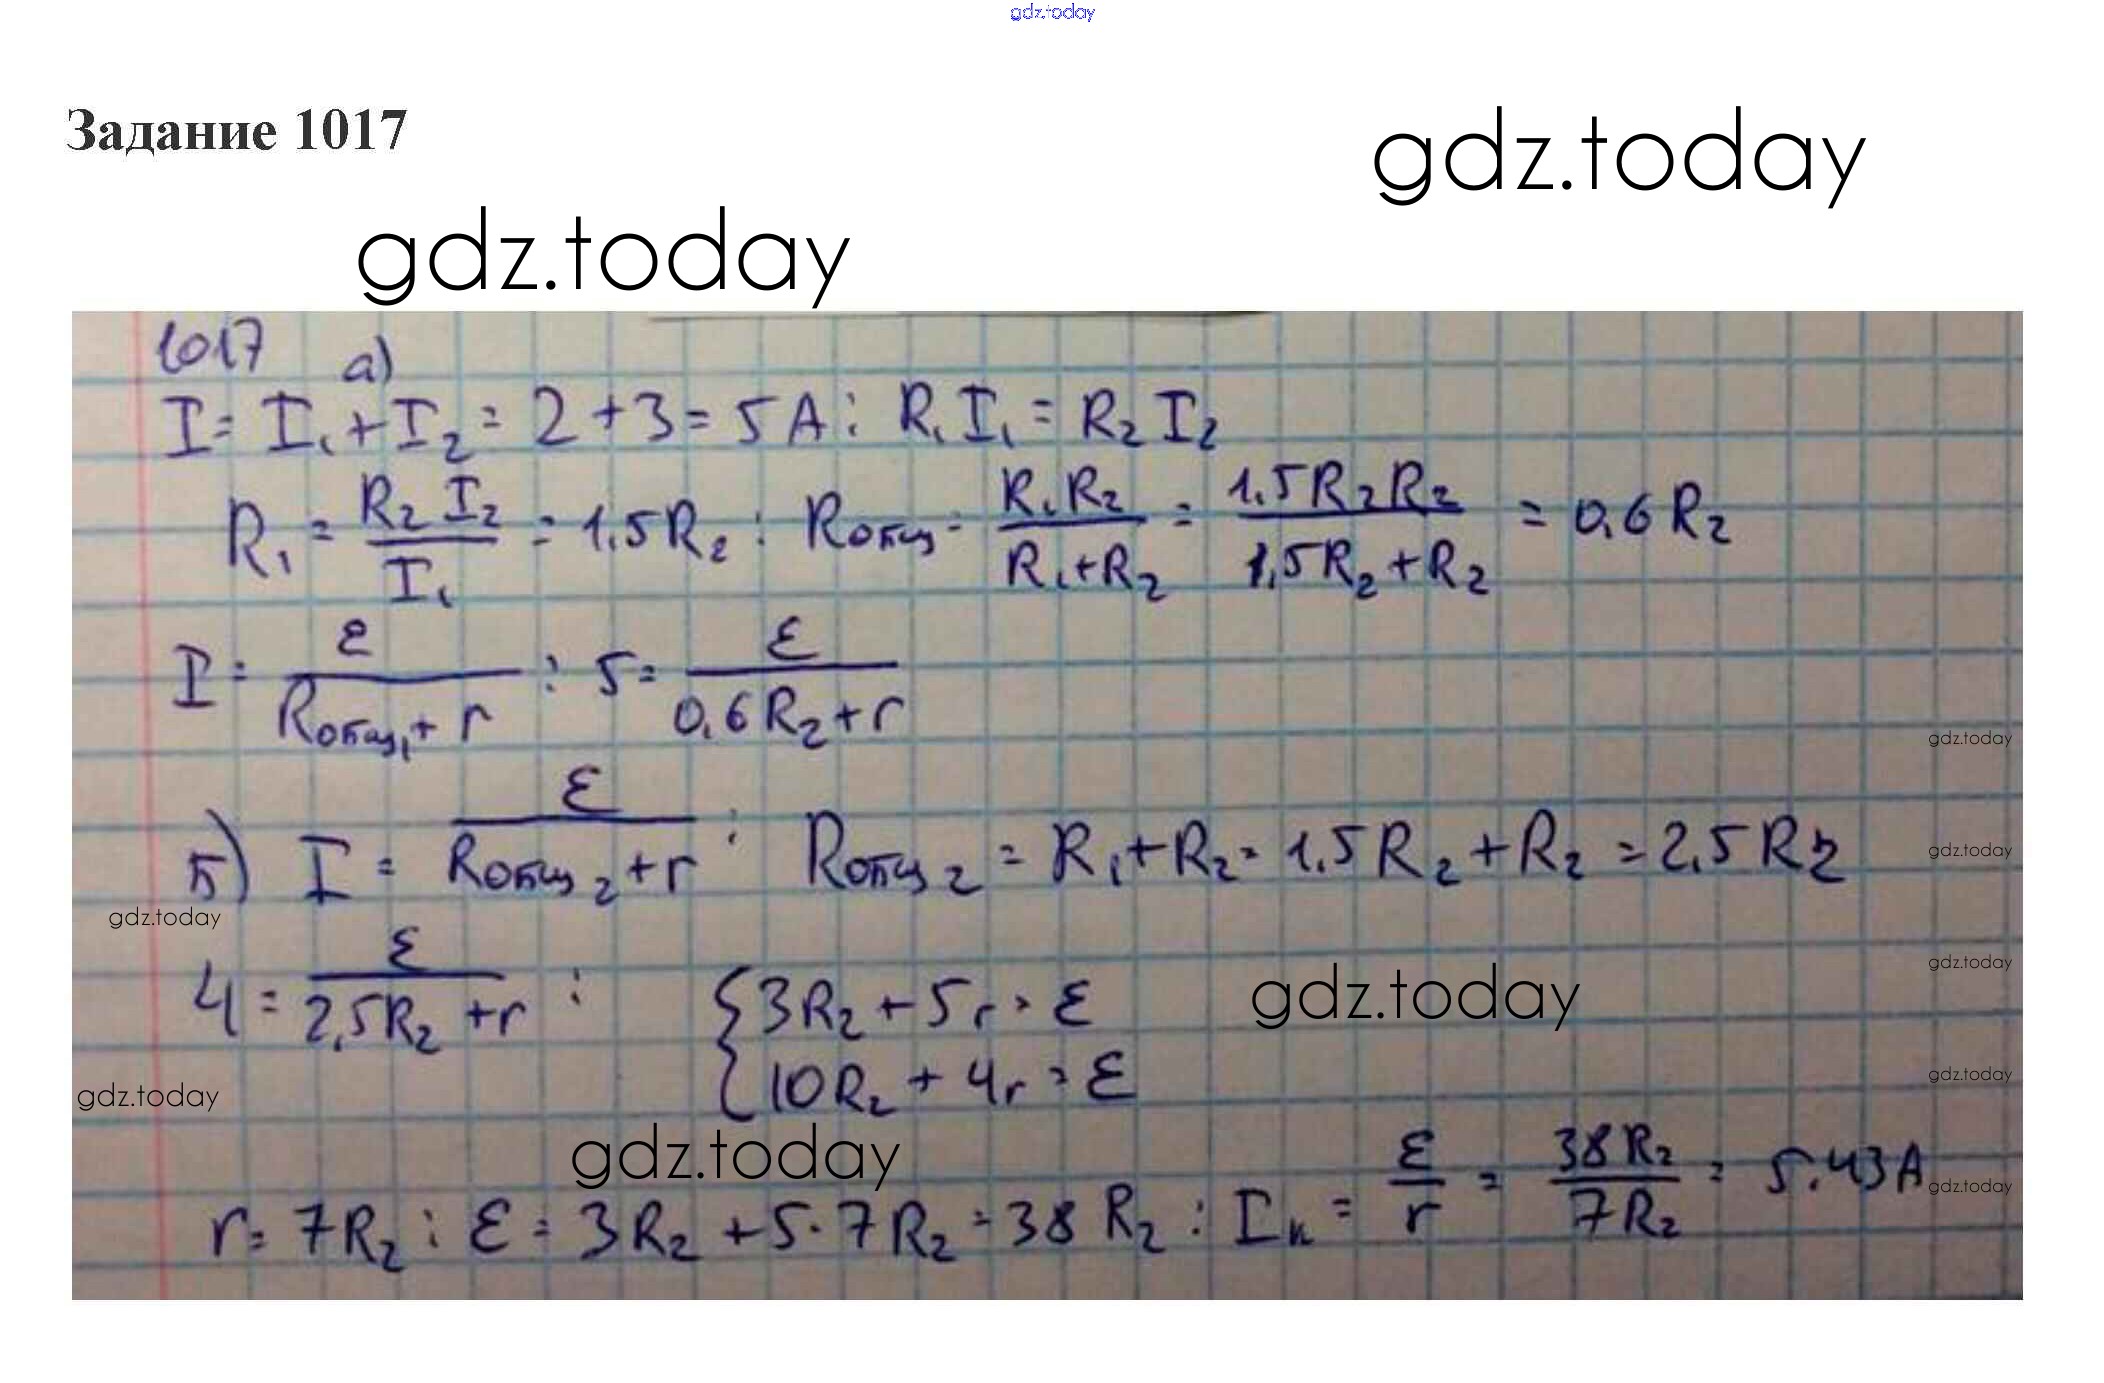 gdz.today
Задание 1017
gdz.today
gdz.today
1017 а)
I = I₁ + I₂ = 2 + 3 = 5 A ; R₁ I₁ = R₂ I₂
R₁ = R₂ I₂ / I₁ = 1,5 R₂ ; Rобщ = R₁ R₂ / R₁ + R₂ = 1,5 R₂ R₂ / 1,5 R₂ + R₂ = 0,6 R₂
I = ε / Rобщ₁ + r ; 5 = ε / 0,6 R₂ + r
gdz.today
б) I = ε / Rобщ₂ + r ; Rобщ₂ = R₁ + R₂ = 1,5 R₂ + R₂ = 2,5 R₂
gdz.today
gdz.today
4 = ε / 2,5 R₂ + r ; { 3R₂ + 5r = ε
10R₂ + 4r = ε
gdz.today
gdz.today
gdz.today
gdz.today
gdz.today
r = 7R₂ ; ε = 3R₂ + 5 · 7R₂ = 38 R₂ ; Iк = ε / r = 38 R₂ / 7R₂ = 5,43 A
gdz.today